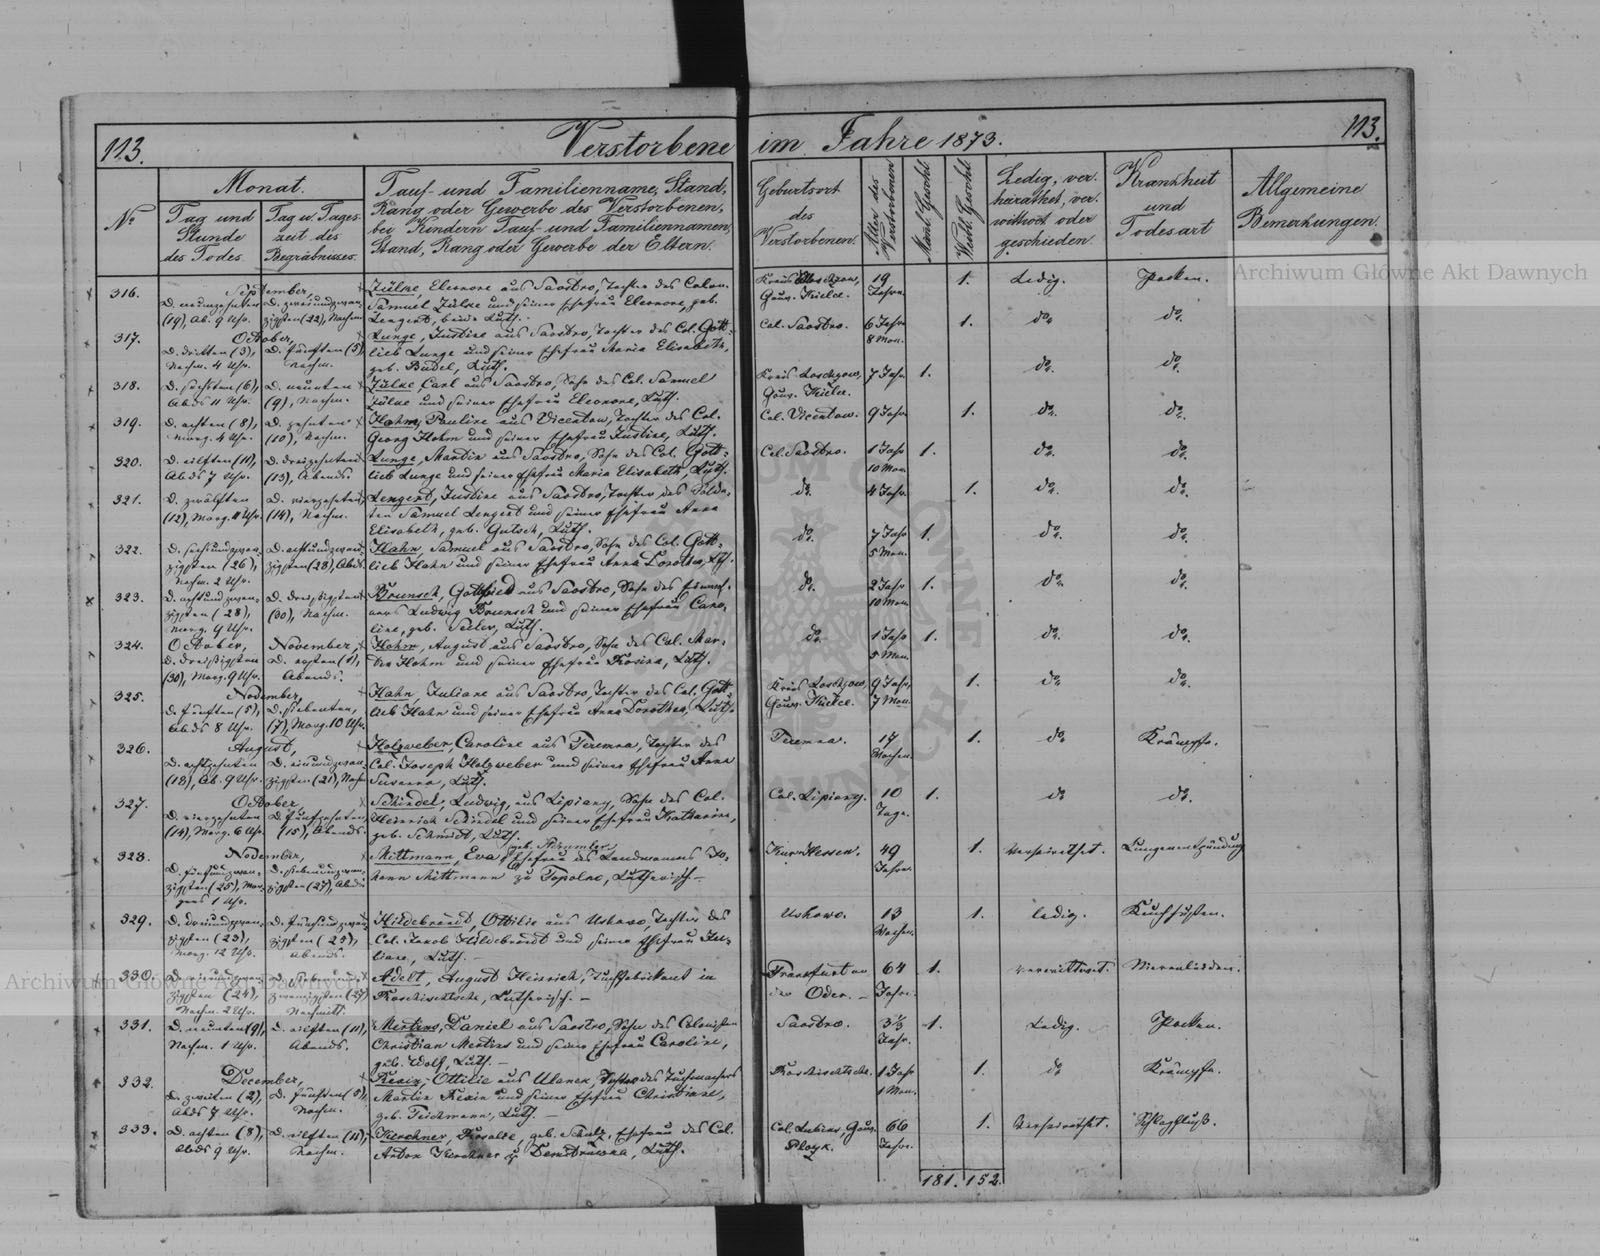 113.
Verstorbene im Jahre 1873.
113.
No
Monat.
Tag und
Stunde
des Todes.
Tag u. Tages-
zeit des
Begräbnisses.
Tauf- und Familienname, Stand,
Rang oder Gewerbe des Verstorbenen,
bei Kindern Tauf- und Familiennamen,
Stand, Rang oder Gewerbe der Eltern.
Geburtsort
des
Verstorbenen.
Alter des
Verstorbenen
Männl. Geschl.
Weibl. Geschl.
Ledig, ver-
heirathet, ver-
wittwet oder
geschieden.
Krankheit
und
Todesart
Allgemeine
Bemerkungen.
316.
September,
D. neunzehnten
(19), Ab. 9 Uhr.
D. zweiundzwan-
zigsten (22), Nachm.
Zülke, Eleonore aus Saostro, Tochter des Colon.
Samuel Zülke und seiner Ehefrau Eleonore, geb.
Lengert, beide Luth.
Gouv. Kielce.
19
Jahre.
1.
Ledig.
Pocken.
317.
October,
D. dritten (3),
Nachm. 4 Uhr.
D. fünften (5)
Nachm.
Lunge, Justine aus Saostro, Tochter des Col. Gott-
lieb Lunge und seiner Ehefrau Maria Elisabeth,
geb. Budel, Luth.
Col. Saostro.
6 Jahr
8 Mon.
1.
do.
do.
318.
D. sechsten (6),
Abds 11 Uhr.
D. neunten
(9), Nachm.
Zülke, Carl aus Saostro, Sohn des Col. Samuel
Zülke und seiner Ehefrau Eleonore, Luth.
Gouv. Kielce.
7 Jahr
1.
do.
do.
319.
D. achten (8),
Morg. 4 Uhr.
D. zehnten
(10), Nachm.
Hahm, Pauline aus Vicentow, Tochter des Col.
Georg Hahm und seiner Ehefrau Justine, Luth.
Col. Vicentow.
9 Jahr
1.
do.
do.
320.
D. eilften (11),
Abds 7 Uhr.
D. dreizehnten
(13), Abends.
Lunge, Martin aus Saostro, Sohn des Col. Gott-
lieb Lunge und seiner Ehefrau Maria Elisabeth, Luth.
Col. Saostro.
1 Jahr
10 Mon.
1.
do.
do.
321.
D. zwölften
(12), Morg. 11 Uhr.
D. vierzehnten
(14), Nachm.
Lengert, Justine aus Saostro, Tochter des Solda-
ten Samuel Lengert und seiner Ehefrau Anna
Elisabeth, geb. Gutsch, Luth.
do.
4 Jahr.
1.
do.
do.
322.
D. sechsundzwan-
zigsten (26),
Nachm. 2 Uhr.
D. achtundzwan-
zigsten (28), Abds.
Hahn, Samuel aus Saostro, Sohn des Col. Gott-
lieb Hahn und seiner Ehefrau Anna Dorothea, Luth.
do.
7 Jahr
5 Mon.
1.
do.
do.
323.
D. achtundzwan-
zigsten (28),
Morg. 9 Uhr.
D. dreißigsten
(30), Nachm.
Brunsch, Gottfried aus Saostro, Sohn des
Ludwig Brunsch und seiner Ehefrau Caro-
line, geb. Seiler, Luth.
do.
2 Jahr
10 Mon.
1.
do.
do.
324.
October,
D. dreißigsten
(30), Morg. 9 Uhr.
November,
D. ersten (1),
Abends.
Hahm, August aus Saostro, Sohn des Col. Mar-
tin Hahm und seiner Ehefrau Rosina, Luth.
do.
1 Jahr
5 Mon.
1.
do.
do.
325.
November,
D. fünften (5),
Abds 8 Uhr.
D. siebenten,
(7), Morg. 10 Uhr.
Hahn, Juliane aus Saostro, Tochter des Col. Gott-
lieb Hahn und seiner Ehefrau Anna Dorothea, Luth.
Gouv. Kielce.
9 Jahr,
7 Mon.
1.
do.
do.
326.
August,
D. achtzehnten
(18), Ab. 9 Uhr.
D. einundzwan-
zigsten (21), Nachm.
Holzweber, Caroline aus Teremna, Tochter des
Col. Joseph Holzweber und seiner Ehefrau Anna
Susanna, Luth.
Teremna.
17
Wochen.
1.
do
Krämpfe.
327.
October,
D. vierzehnten
(14), Morg. 6 Uhr.
D. fünfzehnten,
(15), Abends.
Schindel, Ludwig, aus Lipiany, Sohn des Col.
Heinrich Schindel und seiner Ehefrau Katharine,
geb. Schmidt, Luth.
Col. Lipiany.
10
Tage.
1.
do
do.
328.
November,
D. fünfundzwan-
zigsten (25), Mor-
gens 1 Uhr.
D. siebenundzwan-
zigsten (27), Abds.
Mittmann, Eva, Ehefrau des Landmannes Jo-
hann Mittmann zu Topolno, Lutherisch. —
Kur-Hessen.
49
Jahre.
1.
Verheirathet.
Lungenentzündung
329.
D. dreiundzwan-
zigsten (23),
Morg. 12 Uhr.
D. fünfundzwan-
zigsten (25),
Abends.
Hildebrandt, Ottilie aus Uskowo, Tochter des
Col. Jakob Hildebrandt und seiner Ehefrau Ju-
liane, Luth. —
Uskowo.
13
Wochen.
1.
Ledig.
Keuchhusten.
330.
D. vierundzwan-
zigsten (24),
Nachm. 2 Uhr.
D. siebenund-
zwanzigsten (27)
Nachmitt.
Adelt, August Heinrich, Tuchfabrikant in
Roschischtsche, Lutherisch. —
Frankfurt an
der Oder. —
64
Jahre.
1.
verwittwet.
Nierenleiden.
331.
D. neunten (9),
Nachm. 1 Uhr.
D. eilften (11),
Abends.
Mertins, Daniel aus Saostro, Sohn des Colonisten
Christian Mertins und seiner Ehefrau Caroline,
geb. Wolf, Luth. —
Saostro.
3½
Jahr.
1.
Ledig.
Pocken.
332.
December,
D. zweiten (2),
Abds 7 Uhr.
D. fünften (5),
Nachm.
Ottilie aus Ulanek, Tochter des Tuchmachers
Martin und seiner Ehefrau Christiane,
geb. Teichmann, Luth. —
Roschischtsche.
1 Jahr
1 Mon.
1.
do
Krämpfe.
333.
D. achten (8),
Abds 9 Uhr.
D. eilften (11),
Nachm.
Kirchner, Rosalie, geb. Schulz, Ehefrau des Col.
Anton Kirchner zu Dembrowka, Luth.
Col. Lubins, Gouv.
Plozk.
66
Jahre.
1.
Verheirathet.
Schlagfluß.
181. 152.
Archiwum Główne Akt Dawnych
Archiwum Główne Akt Dawnych